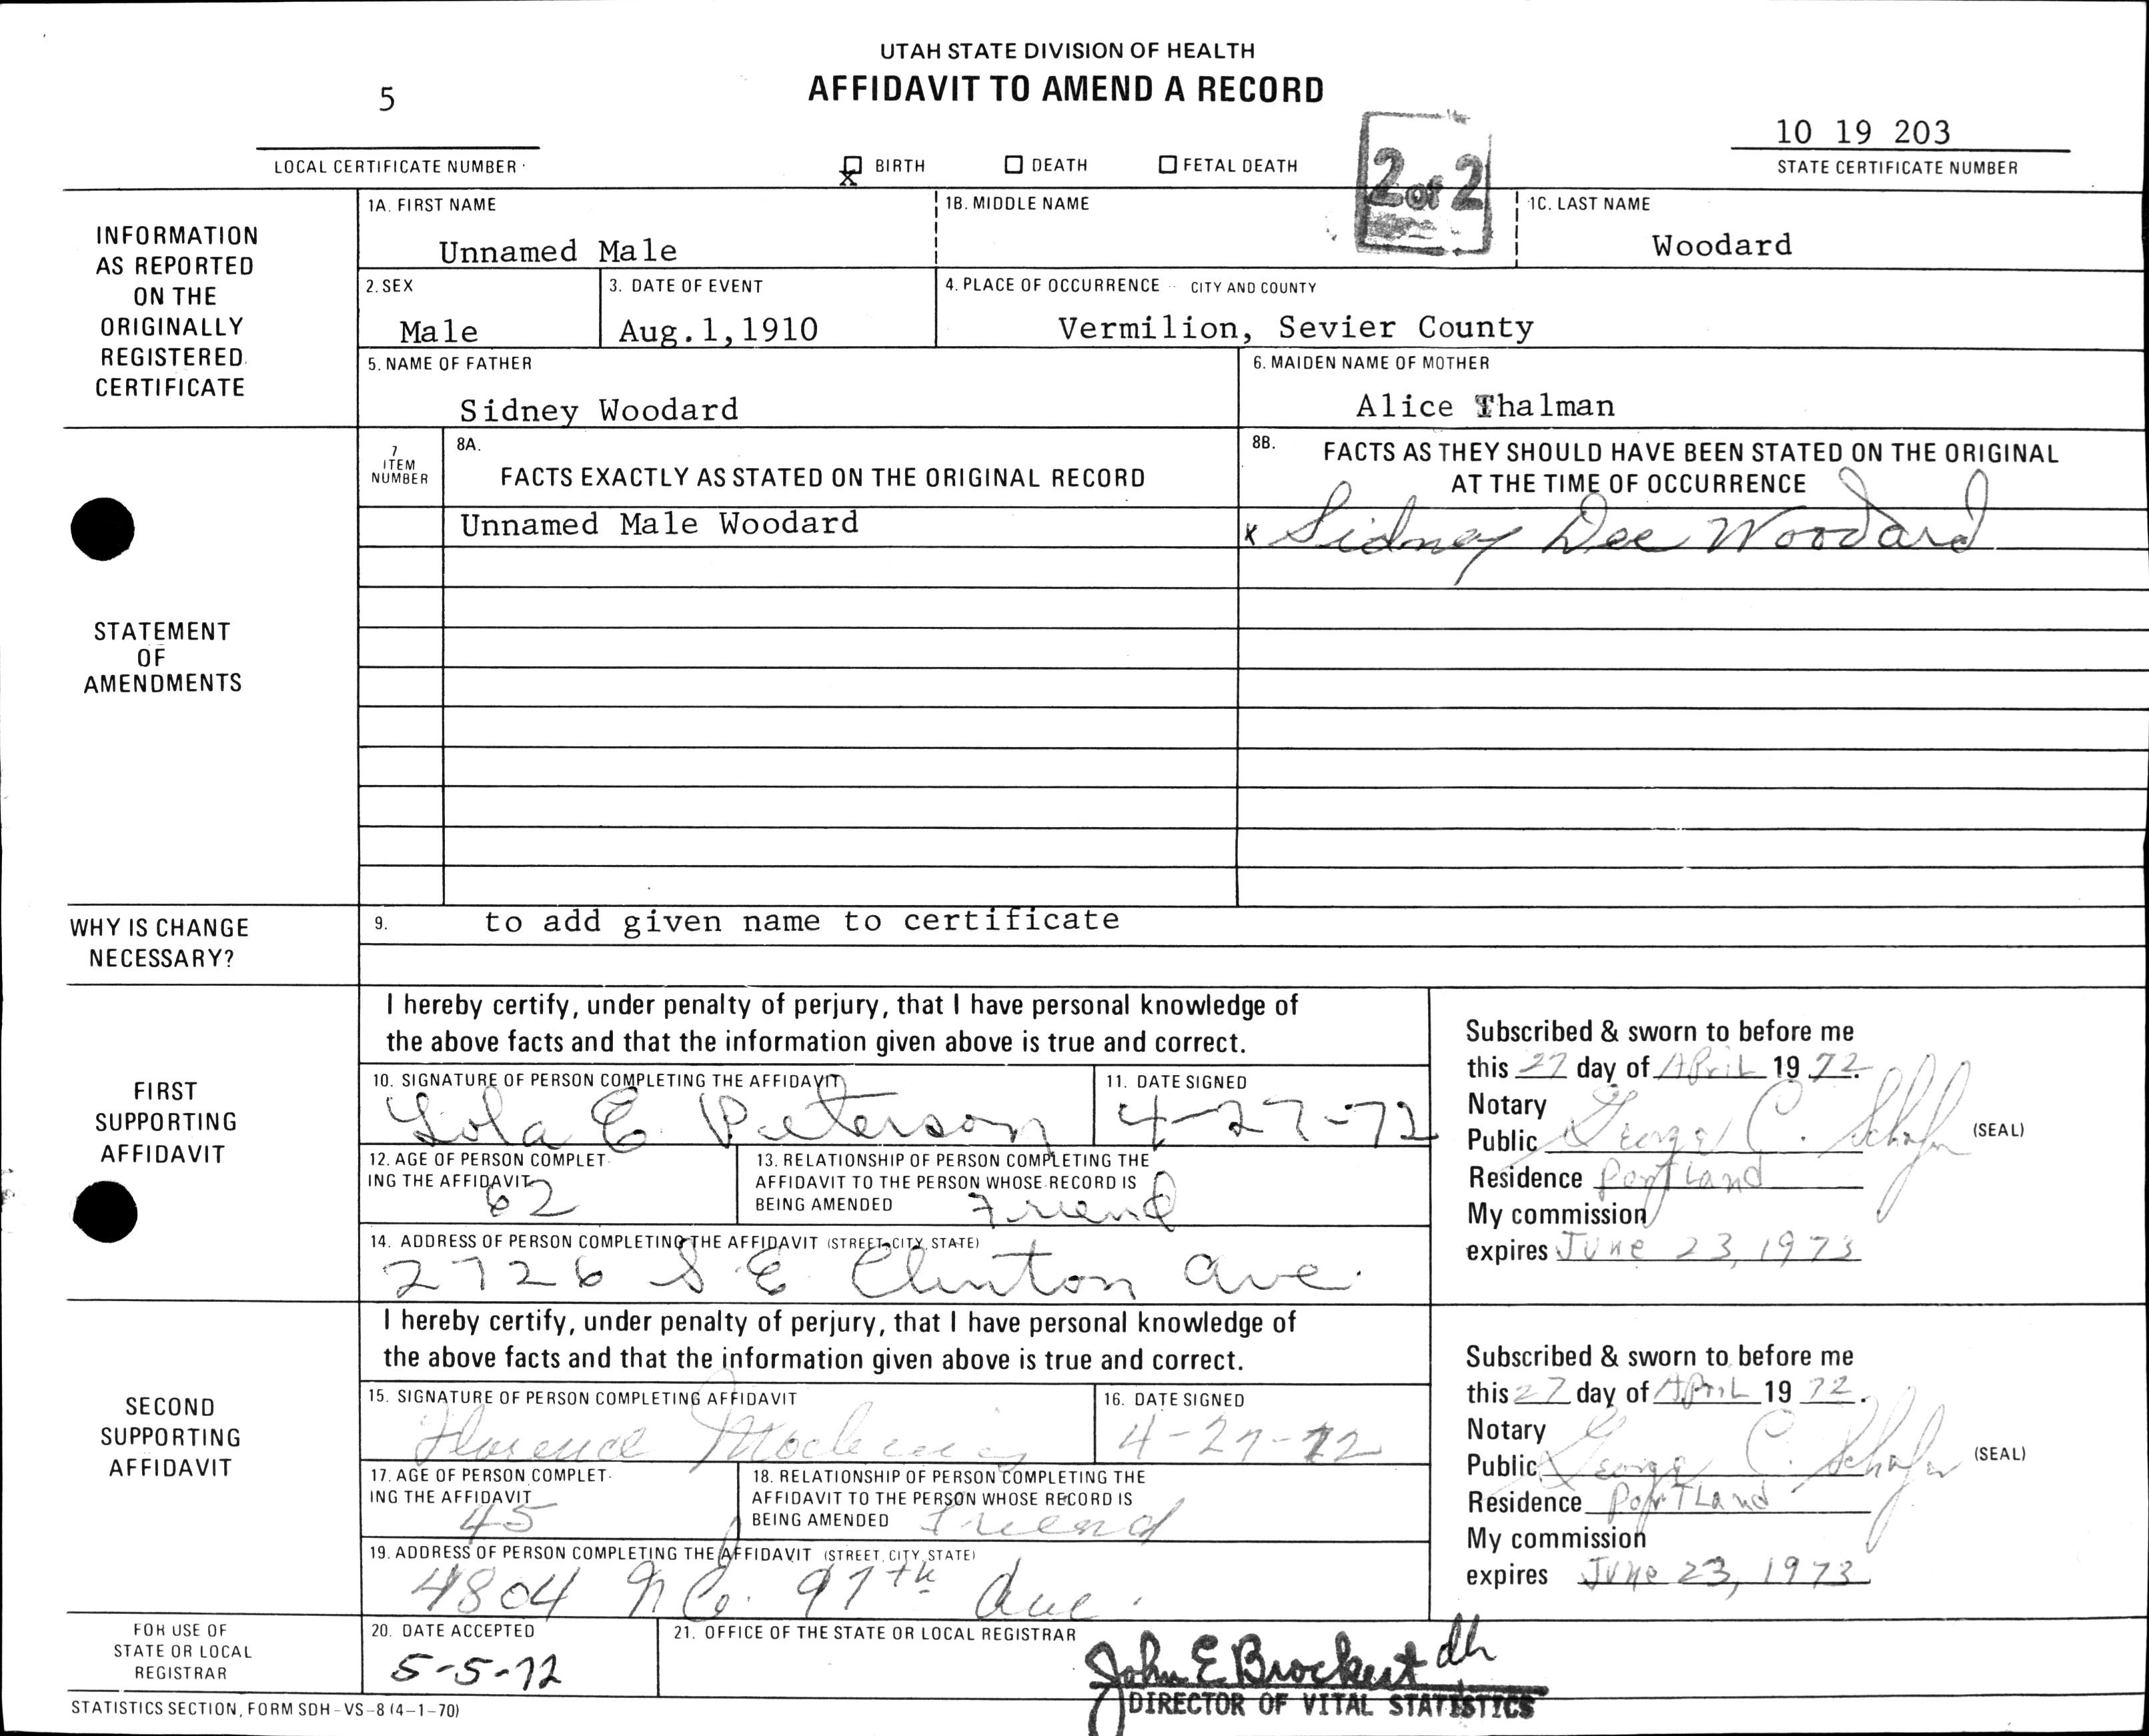 UTAH STATE DIVISION OF HEALTH
AFFIDAVIT TO AMEND A RECORD
5
10 19 203
LOCAL CERTIFICATE NUMBER
X BIRTH
DEATH
FETAL DEATH
2 of 2
STATE CERTIFICATE NUMBER
INFORMATION
AS REPORTED
ON THE
ORIGINALLY
REGISTERED
CERTIFICATE
1A. FIRST NAME
Unnamed Male
1B. MIDDLE NAME
1C. LAST NAME
Woodard
2. SEX
Male
3. DATE OF EVENT
Aug.1,1910
4. PLACE OF OCCURRENCE CITY AND COUNTY
Vermilion, Sevier County
5. NAME OF FATHER
Sidney Woodard
6. MAIDEN NAME OF MOTHER
Alice Thalman
STATEMENT
OF
AMENDMENTS
7
ITEM
NUMBER
8A.
FACTS EXACTLY AS STATED ON THE ORIGINAL RECORD
8B. FACTS AS THEY SHOULD HAVE BEEN STATED ON THE ORIGINAL
AT THE TIME OF OCCURRENCE
Unnamed Male Woodard
x Sidney Dee Woodard
WHY IS CHANGE
NECESSARY?
9. to add given name to certificate
FIRST
SUPPORTING
AFFIDAVIT
I hereby certify, under penalty of perjury, that I have personal knowledge of
the above facts and that the information given above is true and correct.
10. SIGNATURE OF PERSON COMPLETING THE AFFIDAVIT
Lola E. Peterson
11. DATE SIGNED
4-27-72
12. AGE OF PERSON COMPLET-
ING THE AFFIDAVIT
62
13. RELATIONSHIP OF PERSON COMPLETING THE
AFFIDAVIT TO THE PERSON WHOSE RECORD IS
BEING AMENDED Friend
14. ADDRESS OF PERSON COMPLETING THE AFFIDAVIT (STREET, CITY, STATE)
2726 S.E. Clinton Ave.
Subscribed & sworn to before me
this 27 day of April 1972
Notary
Public George C. Schafer (SEAL)
Residence Portland
My commission
expires June 23, 1973
SECOND
SUPPORTING
AFFIDAVIT
I hereby certify, under penalty of perjury, that I have personal knowledge of
the above facts and that the information given above is true and correct.
15. SIGNATURE OF PERSON COMPLETING AFFIDAVIT
Florence
16. DATE SIGNED
4-27-72
17. AGE OF PERSON COMPLET-
ING THE AFFIDAVIT
45
18. RELATIONSHIP OF PERSON COMPLETING THE
AFFIDAVIT TO THE PERSON WHOSE RECORD IS
BEING AMENDED Friend
19. ADDRESS OF PERSON COMPLETING THE AFFIDAVIT (STREET, CITY, STATE)
4804 N.E. 97th Ave.
Subscribed & sworn to before me
this 27 day of April 1972.
Notary
Public George C. Schafer (SEAL)
Residence Portland
My commission
expires June 23, 1973
FOR USE OF
STATE OR LOCAL
REGISTRAR
20. DATE ACCEPTED
5-5-72
21. OFFICE OF THE STATE OR LOCAL REGISTRAR
John E Brockert dh
DIRECTOR OF VITAL STATISTICS
STATISTICS SECTION, FORM SDH-VS-8 (4-1-70)